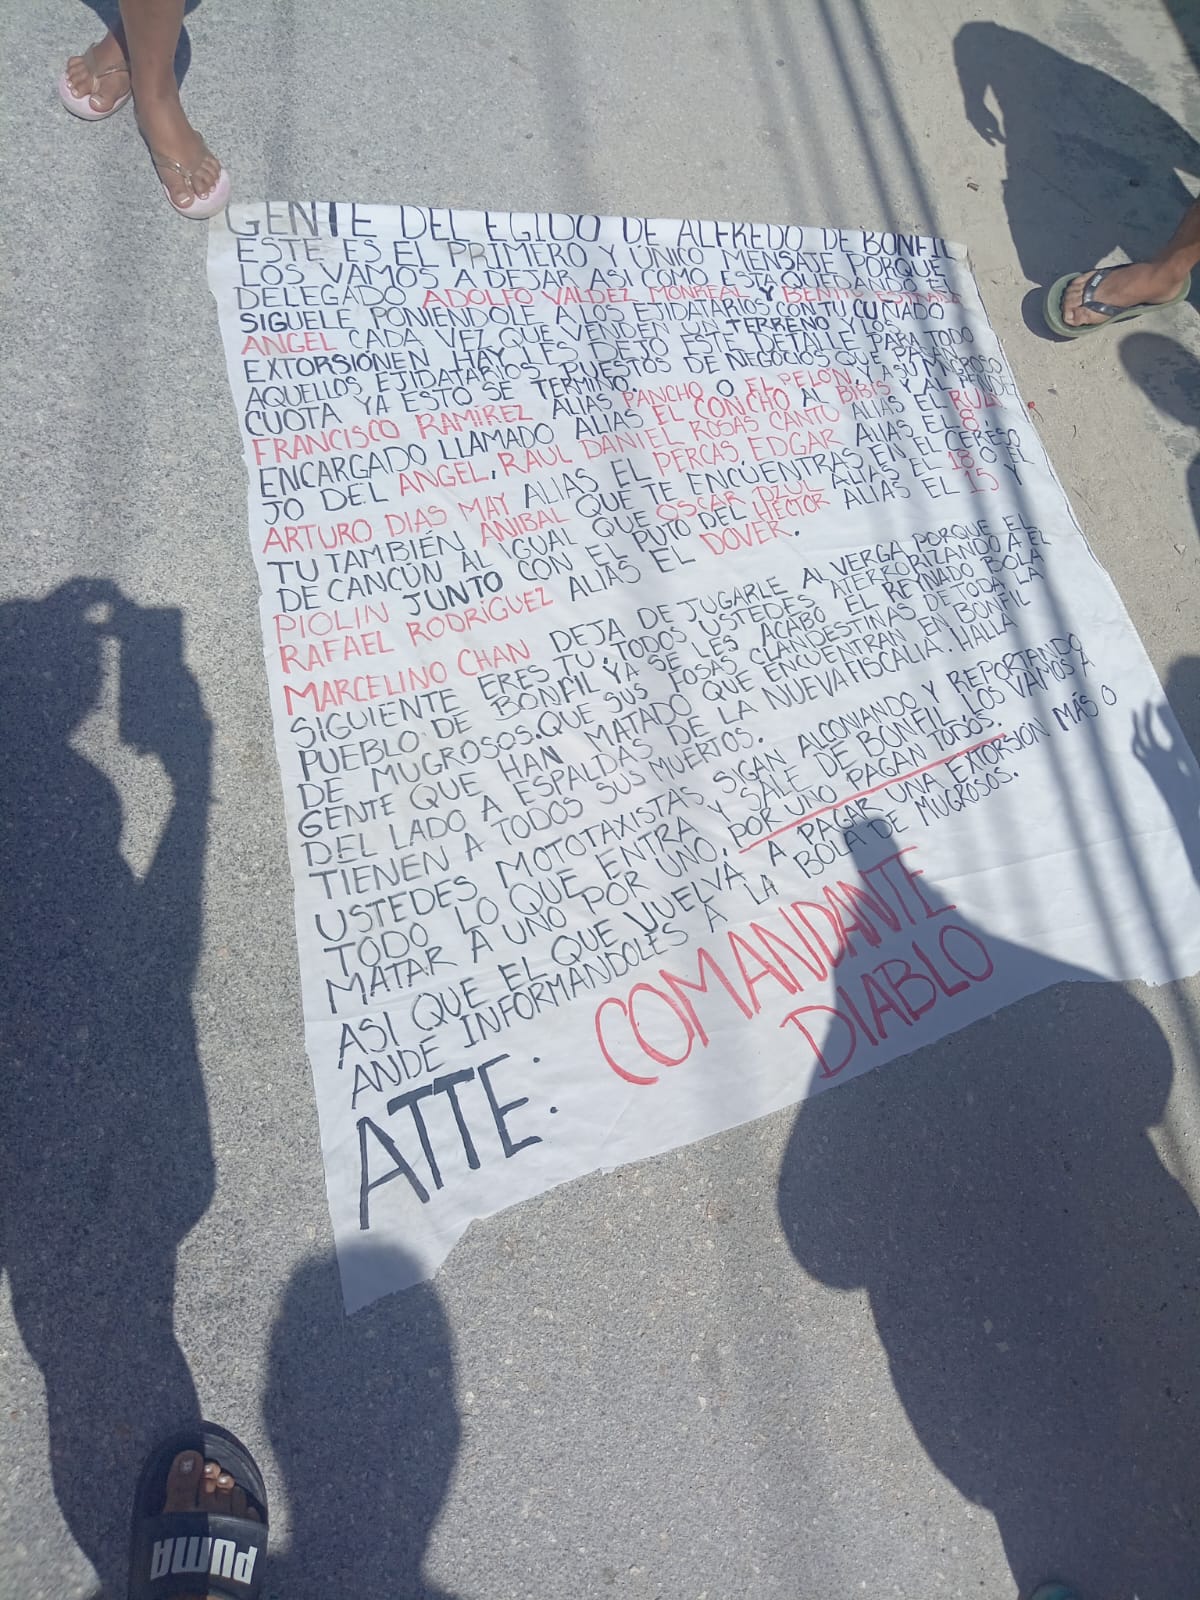 GENTE DEL EGIDO DE ALFREDO DE BONFIL
ESTE ES EL PRIMERO Y UNICO MENSAJE PORQUE
LOS VAMOS A DEJAR ASI COMO ESTA QUEDANDO EL
DELEGADO ADOLFO VALDEZ MONREAL Y BENITO
SIGUELE PONIENDOLE A LOS EJIDATARIOS CON TU CUÑADO
ANGEL CADA VEZ QUE VENDEN UN TERRENO Y LOS
EXTORSIONEN HAY LES DEJO ESTE DETALLE PARA TODO
AQUELLOS EJIDATARIOS PUESTOS DE NEGOCIOS QUE PAGAN
CUOTA YA ESTO SE TERMINO.
FRANCISCO RAMIREZ ALIAS PANCHO O EL PELÓN, Y A SU MUGROSO
ENCARGADO LLAMADO ALIAS EL CONCHO AL BIBIS Y AL PENDE
JO DEL ANGEL, RAUL DANIEL ROSAS CANTO ALIAS EL RULI
ARTURO DIAS MAY ALIAS EL PERCAS EDGAR ALIAS EL 8
TU TAMBIÉN ANIBAL QUE TE ENCUENTRAS EN EL CERESO
DE CANCÚN AL IGUAL QUE OSCAR DZUL ALIAS EL 18 O EL
PIOLIN JUNTO CON EL PUTO DEL HÉCTOR ALIAS EL 15 Y
RAFAEL RODRÍGUEZ ALIAS EL DOVER.
MARCELINO CHAN DEJA DE JUGARLE AL VERGA PORQUE EL
SIGUIENTE ERES TU. TODOS USTEDES ATERRORIZANDO A EL
PUEBLO DE BONFIL YA SE LES ACABO EL REYNADO BOLA
DE MUGROSOS. QUE SUS FOSAS CLANDESTINAS DE TODA LA
GENTE QUE HAN MATADO QUE ENCUENTRAN EN BONFIL
DEL LADO A ESPALDAS DE LA NUEVA FISCALIA. HALLA
TIENEN A TODOS SUS MUERTOS.
USTEDES MOTOTAXISTAS SIGAN ALCONIANDO Y REPORTANDO
TODO LO QUE ENTRA Y SALE DE BONFIL, LOS VAMOS A
MATAR A UNO POR UNO, POR UNO PAGAN TODOS.
ASI QUE EL QUE VUELVA A PAGAR UNA EXTORSION MÁS O
ANDE INFORMANDOLES A LA BOLA DE MUGROSOS.
ATTE: COMANDANTE
DIABLO
PUMA